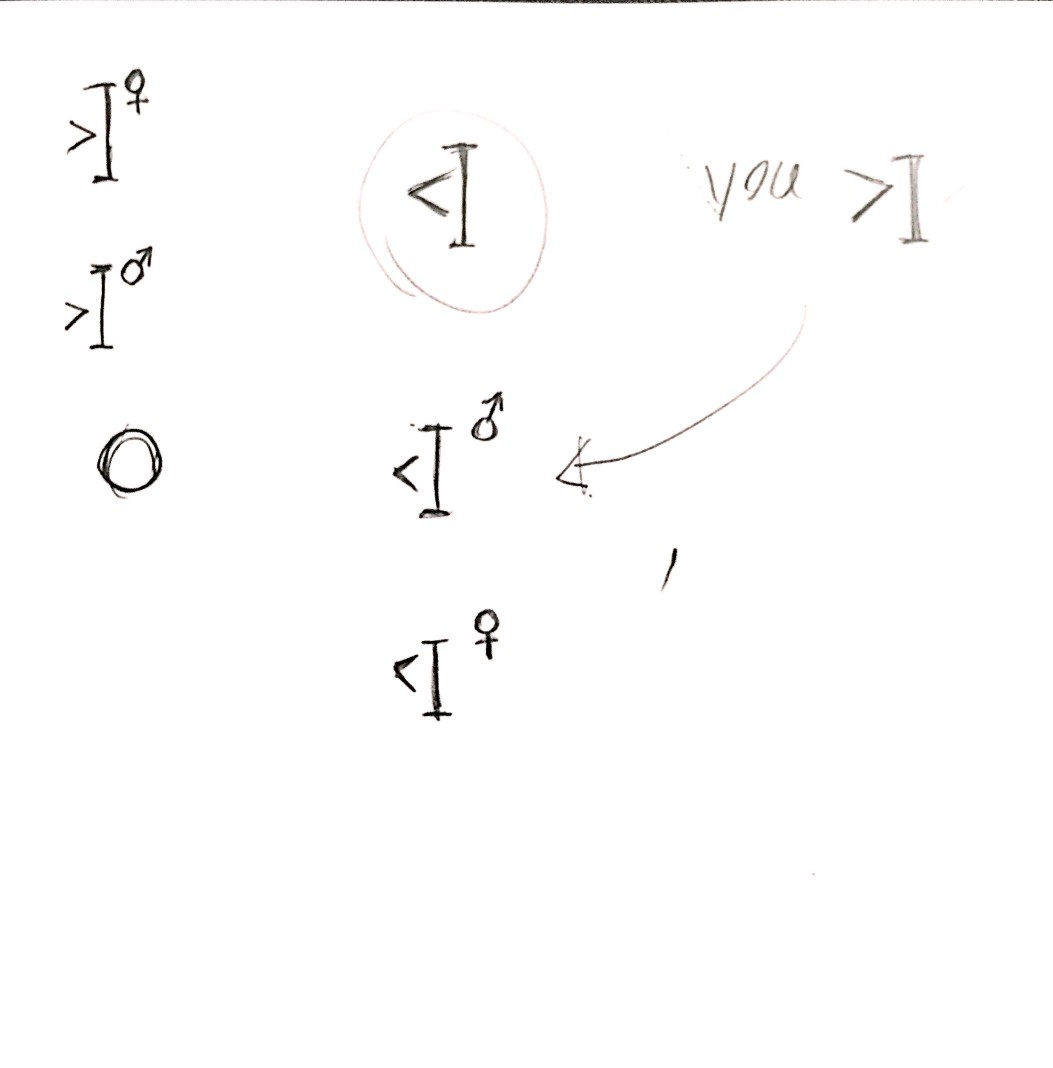 >I♀
<I you >I
>I♂
<I♂
<I♀